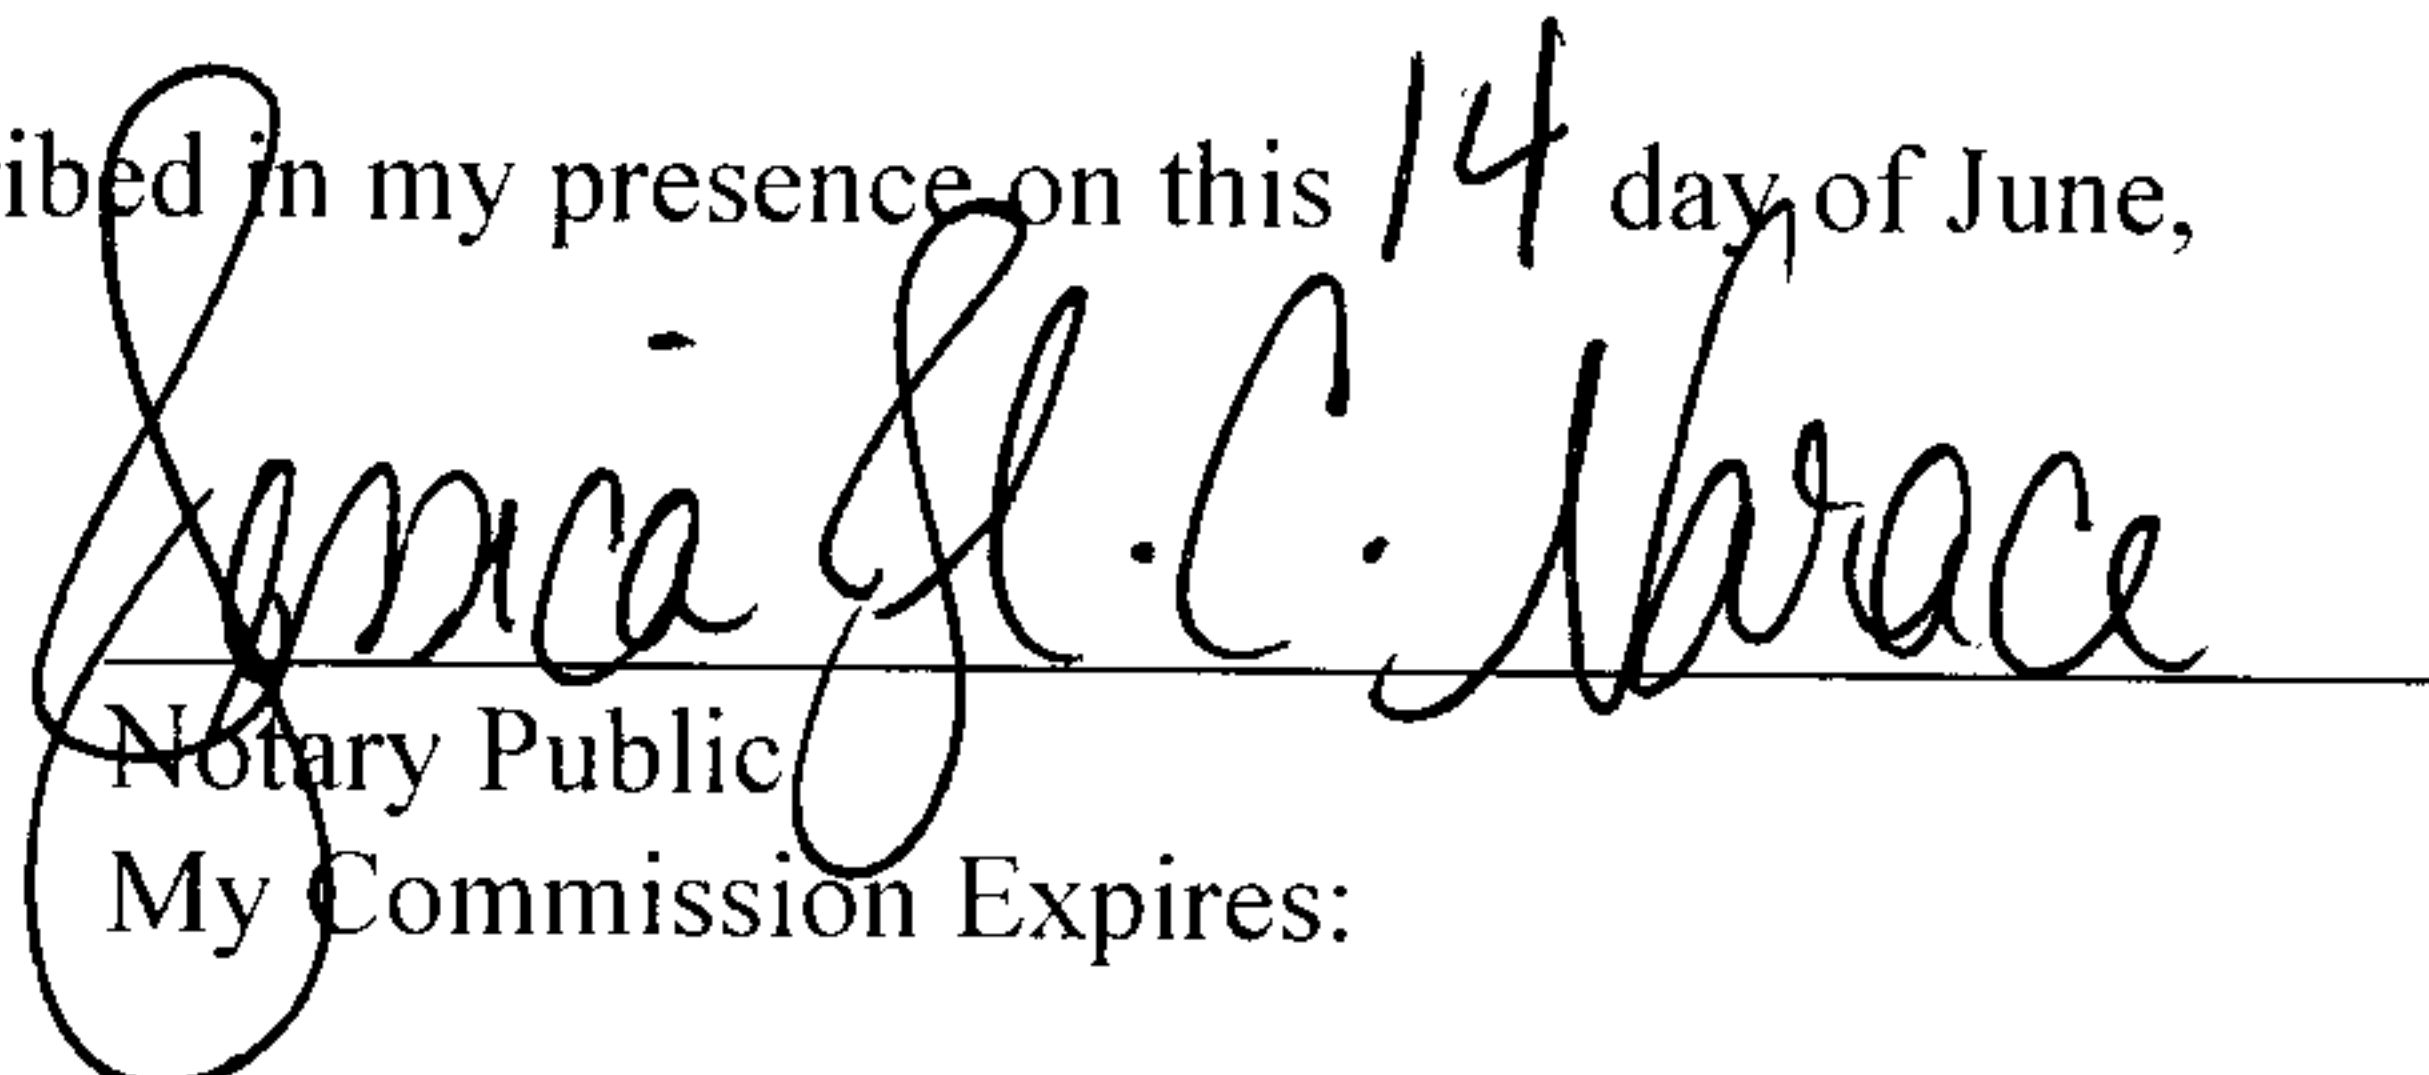 ibed in my presence on this 14 day of June,
Jessica H. C.
Notary Public
My Commission Expires: